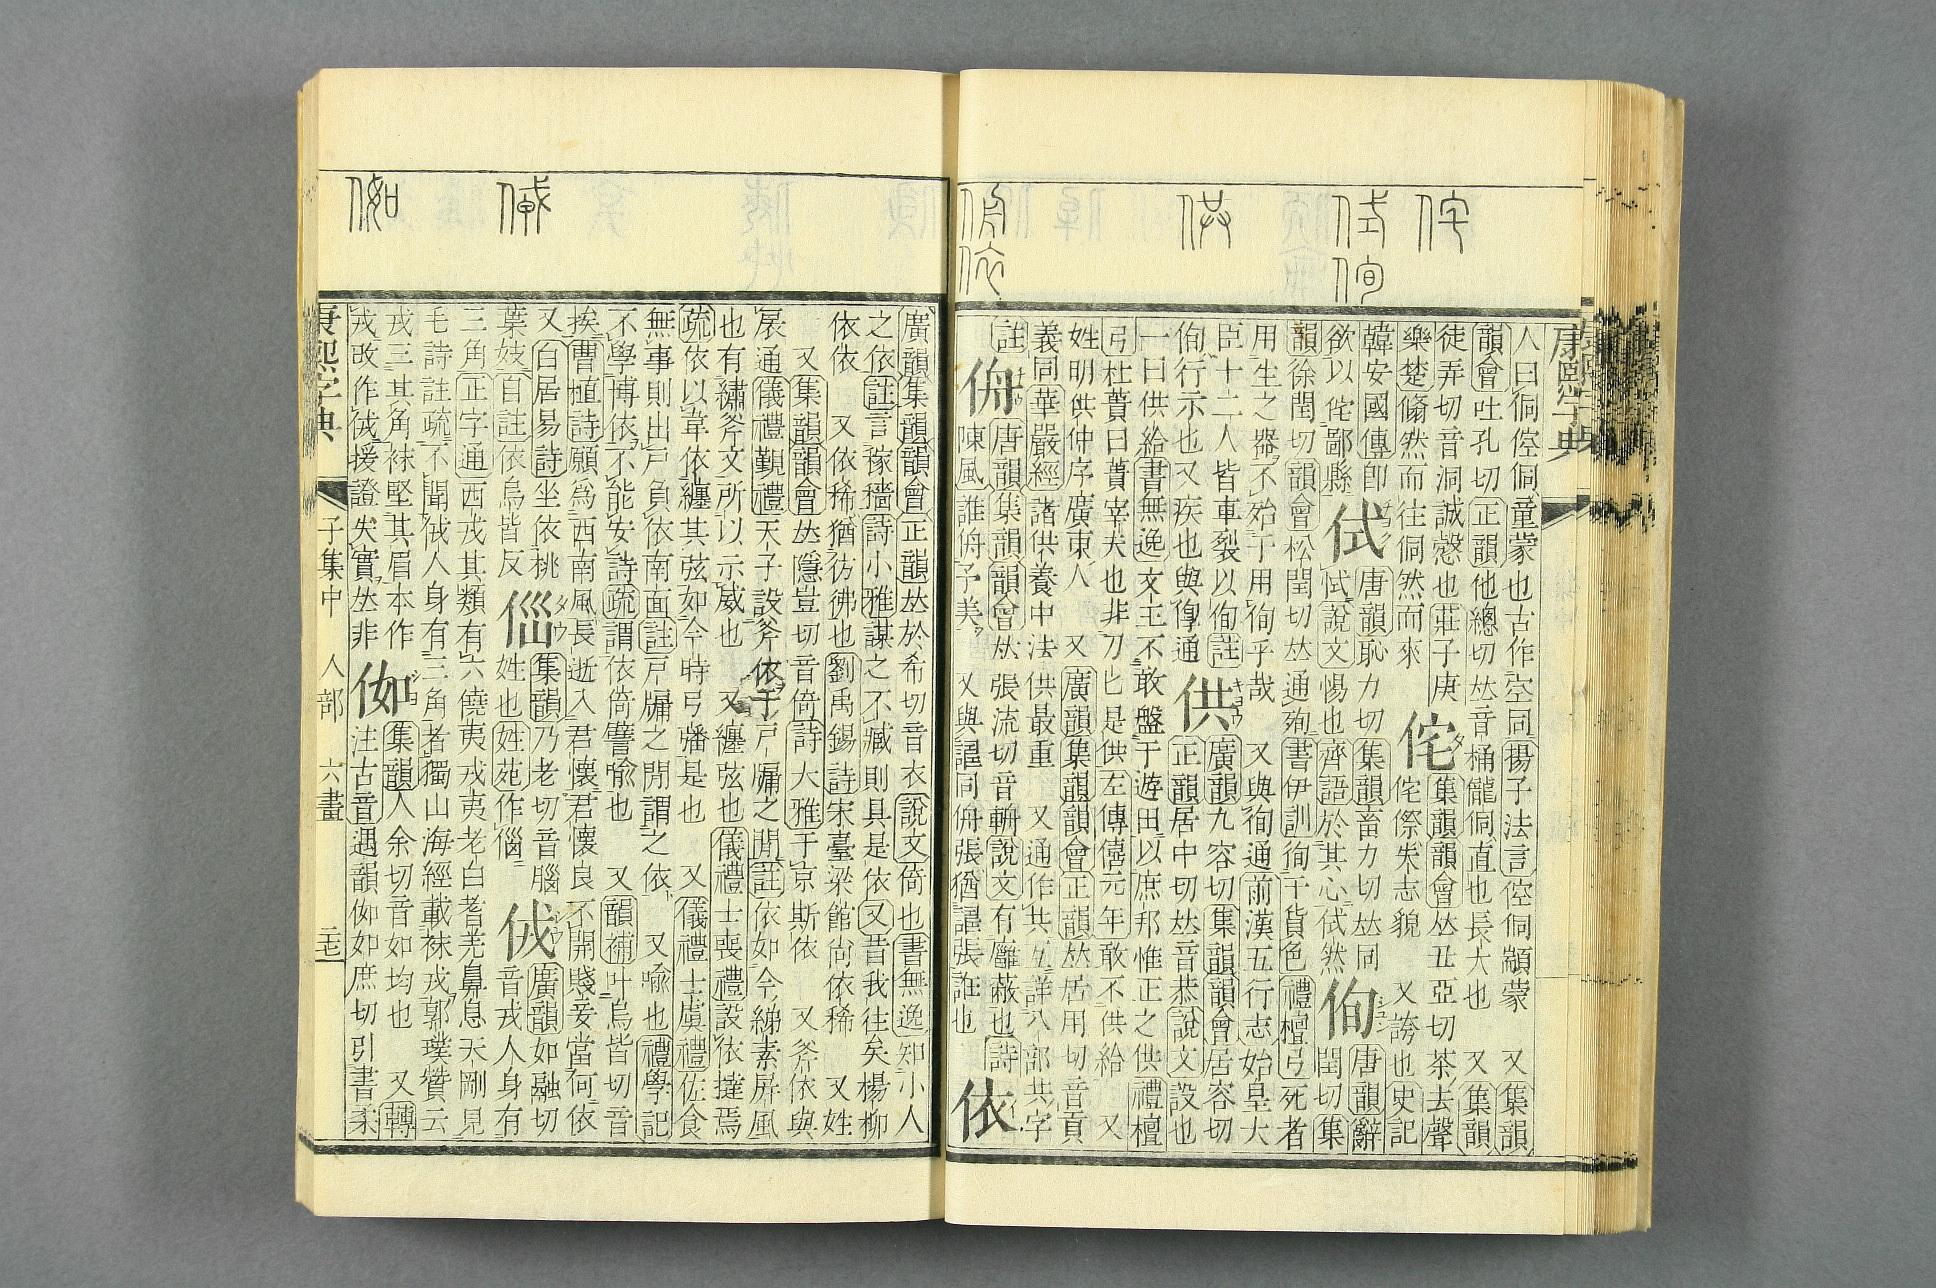 侘
佷
侚
供
侜
依
康熙字典
人曰侗倥侗童蒙也古作空同揚子法言倥侗顓蒙 又集韻
韻會吐孔切正韻他總切𠀤音桶儱侗直也長大也 又集韻
徒弄切音洞誠慤也莊子庚 侘 集韻韻會𠀤丑亞切茶去聲
樂楚翛然而往侗然而來 侘傺失志貌 又誇也史記
韓安國傳卽 侙 唐韻恥力切集韻畜力切𠀤同 侚 唐韻辭
欲以侘鄙縣 恜說文惕也齊語於其心侙然 閏切集
韻徐閏切韻會松閏切𠀤通殉書伊訓徇于貨色禮檀弓死者
用生之器不殆于用侚乎哉 又與徇通前漢五行志始皇大
臣十二人皆車裂以侚註 供 廣韻九容切集韻韻會居容切
侚行示也又疾也與㑺通 正韻居中切𠀤音恭說文設也
一曰供給書無逸文王不敢盤于遊田以庶邦惟正之供禮檀
弓杜蕢曰蕢宰夫也非刀匕是供左傳僖元年敢不供給 又
姓明供仲序廣東人 又廣韻集韻韻會正韻𠀤居用切音貢
義同華嚴經諸供養中法供最重 又通作共互詳八部共字
註 侜 唐韻集韻韻會𠀤張流切音輈說文有廱蔽也詩 依
陳風誰侜予美 又與譸同侜張猶譸張誑也
廣韻集韻韻會正韻𠀤於希切音衣說文倚也書無逸知小人
之依註言稼穡詩小雅謀之不臧則具是依又昔我往矣楊柳
依依 又依稀猶彷彿也劉禹錫詩宋臺梁館尙依稀 又姓
又集韻韻會𠀤隱豈切音倚詩大雅于京斯依 又斧依與
扆通儀禮覲禮天子設斧依于戸牖之閒註依如今綈素屏風
也有繡斧文所以示威也 又纏弦也儀禮士喪禮設依撻焉
疏依以韋依纏其弦如今時弓𥷑是也 又儀禮士虞禮佐食
無事則出戸負依南面註戸牖之閒謂之依 又喩也禮學記
不學博依不能安詩疏謂依倚譬喩也 又韻補叶烏皆切音
挨曹植詩願爲西南風長逝入君懷君懷良不開賤妾當何依
又白居易詩坐依桃 㑎 集韻乃老切音腦 㑄 廣韻如融切
葉妓自註依烏皆反 姓也姓苑作㑎 音戎人身有
三角正字通西戎其類有六僥夷戎夷老白耆羌鼻息天剛見
毛詩註疏不聞㑄人身有三角者獨山海經載袜戎郭璞贊云
戎三其角袜堅其眉本作 㑀 集韻人余切音如均也 又轉
戎改作㑄援證失實𠀤非 注古音遇韻㑀如庶切引書柔
康熙字典
子集中
人部
六畫